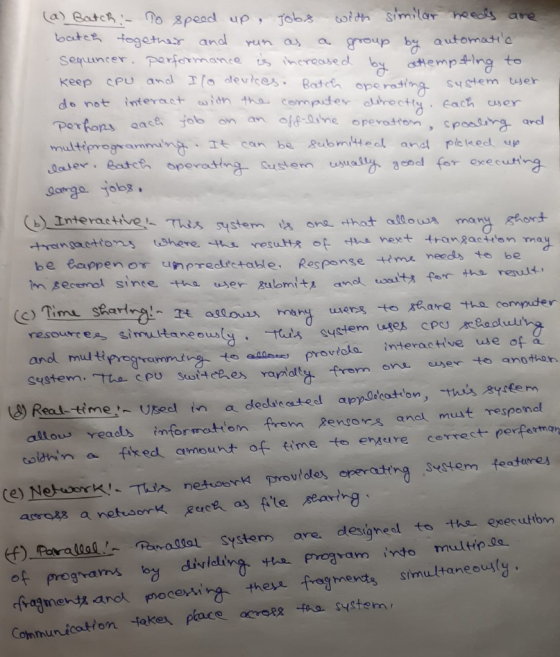 (a) Batch :- To speed up, jobs with similar needs are
batch together and run as a group by automatic
sequncer. performance is increased by attempting to
keep CPU and I/o devices. Batch operating system user
do not interact with the computer directly. Each user
perhaps each job on an off-line operation, spooling and
multiprogramming. It can be submitted and picked up
later. Batch operating system usually good for executing
large jobs.
(b) Interactive :- This system is one that allows many short
transactions where the results of the next transaction may
be happen or unpredictable. Response time needs to be
in second since the user submits and waits for the result.
(c) Time sharing :- It allows many users to share the computer
resources simultaneously. This system uses CPU scheduling
and multiprogramming to provide interactive use of a
system. The CPU switches rapidly from one user to another
(d) Real-time :- Used in a dedicated application, this system
allow reads information from sensors and must respond
within a fixed amount of time to ensure correct performan
(e) Network :- This network provides operating system features
across a network such as file searing.
(f) Parallel :- Parallel system are designed to the execution
of programs by dividing the program into multiple
fragments and processing these fragments simultaneously.
Communication takes place across the system.